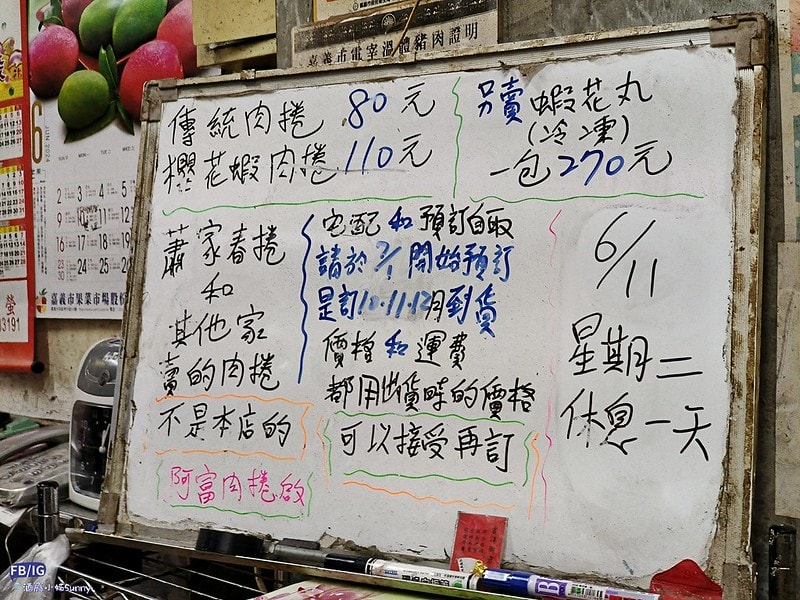 嘉義市電宰溫體豬肉證明
傳統肉捲 80元
櫻花蝦肉捲 110元
另賣 蝦花丸
(冷凍)
一包270元
蕭家春捲
和
其他家
賣的肉捲
不是本店的
阿富肉捲啟
宅配和預訂自取
請於7/1開始預訂
是訂10.11.12月到貨
價格和運費
都用出貨時的價格
可以接受再訂
6/11
星期二
休息一天
6
JUN 2024
嘉義市果菜市場股份
3191
FB/IG
Sunny